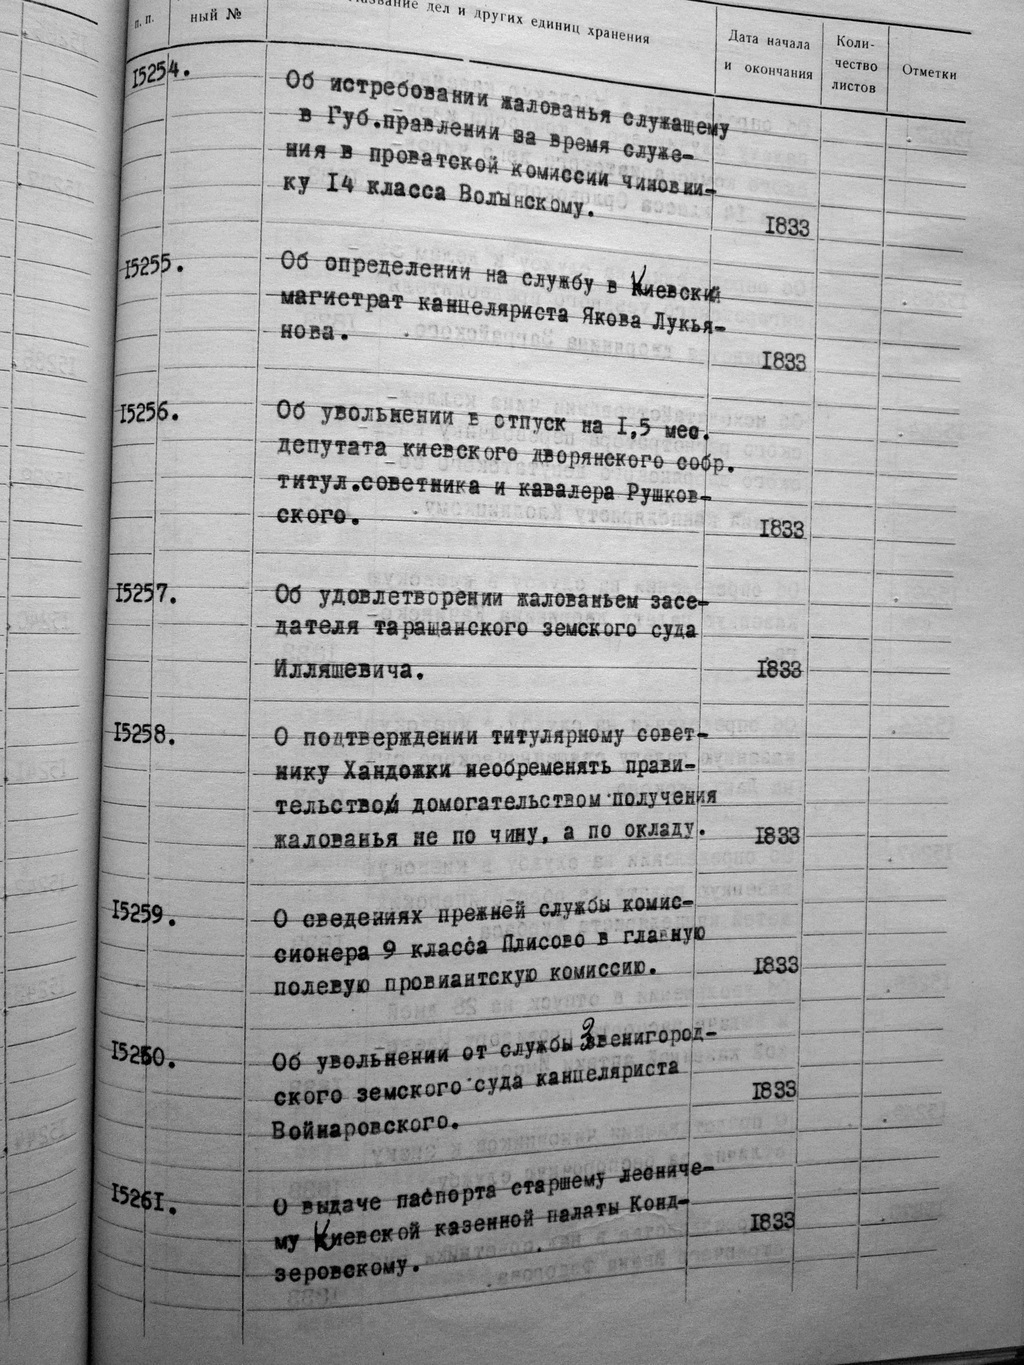 п. п.
ный №
дел и других единиц хранения
Дата начала
и окончания
Коли-
чество
листов
Отметки
15254.
Об истребовании жалованья служащему
в Губ.правлении за время служе-
ния в проватской комиссии чиновни-
ку 14 класса Волынскому.
1833
15255.
Об определении на службу в Киевский
магистрат канцеляриста Якова Лукья-
нова.
1833
15256.
Об увольнении в отпуск на 1,5 мес.
депутата киевского дворянского собр.
титул.советника и кавалера Рушков-
ского.
1833
15257.
Об удовлетворении жалованьем засе-
дателя таращанского земского суда
Илляшевича.
1833
15258.
О подтверждении титулярному совет-
нику Хандожки необременять прави-
тельство домогательством получения
жалованья не по чину, а по окладу.
1833
15259.
О сведениях прежней службы комис-
сионера 9 класса Плисово в главную
полевую провиантскую комиссию.
1833
15260.
Об увольнении от службы Звенигород-
ского земского суда канцеляриста
Войнаровского.
1833
15261.
О выдаче паспорта старшему лесниче-
му Киевской казенной палаты Конд-
зеровскому.
1833